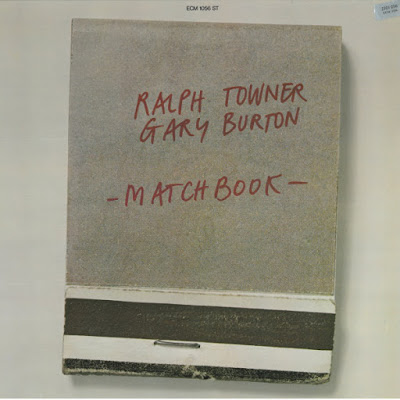 ECM 1056 ST
RALPH TOWNER
GARY BURTON
- MATCHBOOK -